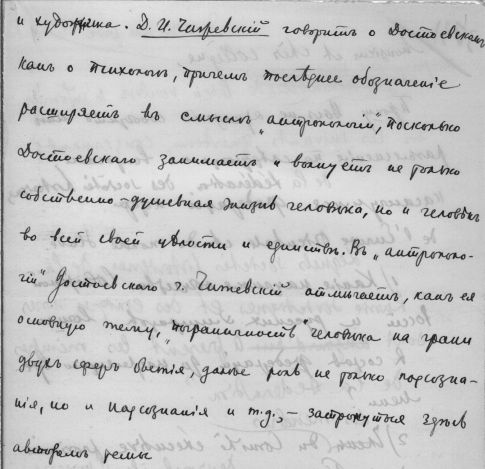 и художника. Д. И. Чижевскій говоритъ о Достоевскомъ
какъ о психологѣ, причемъ послѣднее обозначеніе
расширяетъ въ смыслѣ „антропологіи", поскольку
Достоевскаго занимаетъ и волнуетъ не только
собственно-душевная жизнь человѣка, но и человѣкъ
во всей своей цѣлости и единствѣ. Въ „антрополо-
гіи" Достоевскаго г. Чижевскій отмѣчаетъ, какъ ея
основную тему, „пограничность" человѣка на грани
двухъ сферъ бытія, далѣе роль не только подсозна-
нія, но и надсознанія и т.д., – затронутыя здѣсь
авторомъ темы